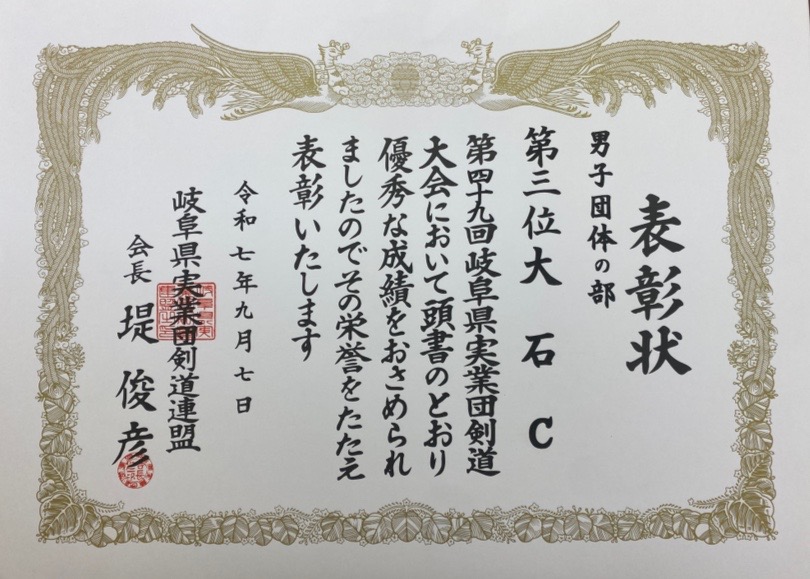 表彰状
男子団体の部
第三位 大石C
第四十九回岐阜県実業団剣道
大会において頭書のとおり
優秀な成績をおさめられ
ましたのでその栄誉をたたえ
表彰いたします
令和七年九月七日
岐阜県実業団剣道連盟
会長 堤俊彦